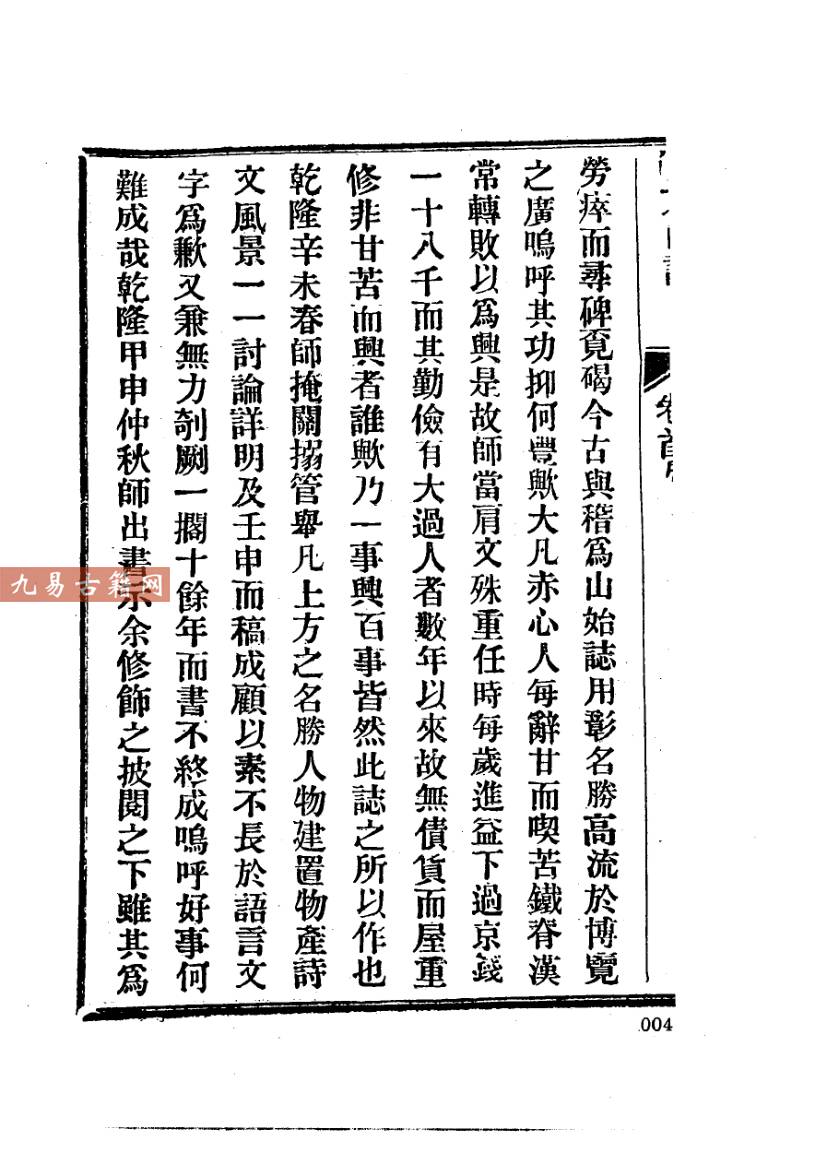 勞瘁而尋碑覓碣今古與稽爲山始誌用彰名勝高流於博覽
之廣嗚呼其功抑何豐歟大凡赤心人每辭甘而喫苦鐵脊漢
常轉敗以爲興是故師當肩文殊重任時每歲進益下過京錢
一十八千而其勤儉有大過人者數年以來故無債貨而屋重
修非甘苦而興者誰歟乃一事興百事皆然此誌之所以作也
乾隆辛未春師掩關搦管舉凡上方之名勝人物建置物產詩
文風景一一討論詳明及壬申而稿成顧以素不長於語言文
字爲歉又兼無力剞劂一擱十餘年而書不終成嗚呼好事何
難成哉乾隆甲申仲秋師出書示余修飾之披閱之下雖其爲
卷首
004
九易古籍网